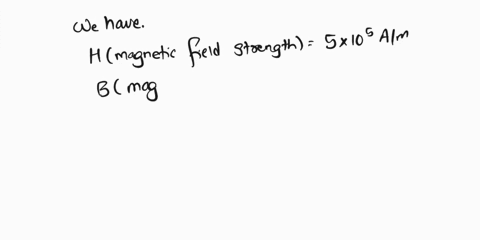 We have.
H (magnetic field strength) = 5×10⁵ A/m
B ( mag